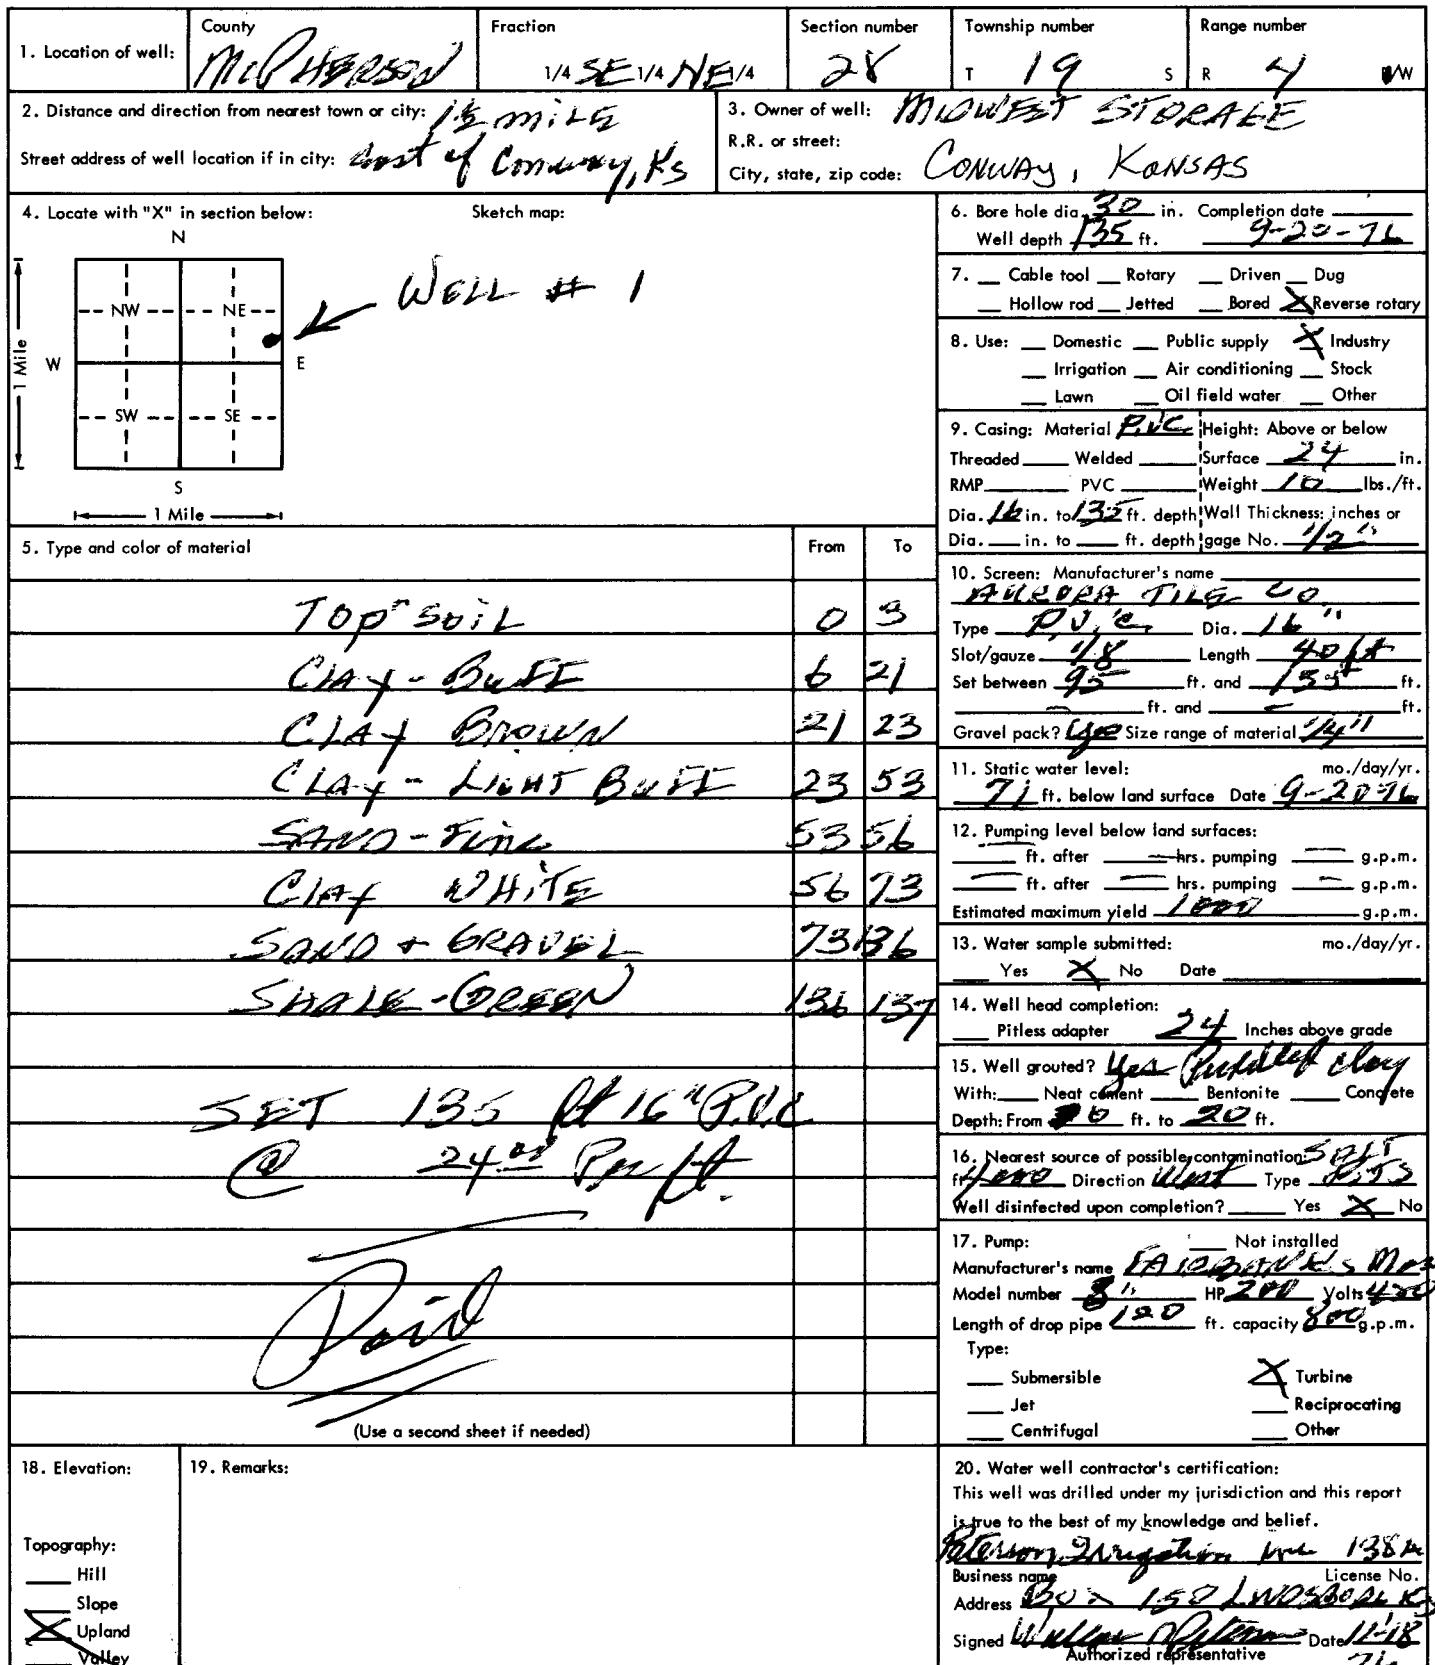 County Fraction Section number Township number Range number
1. Location of well: McPHERSON 1/4 SE 1/4 NE 1/4 28 T 19 S R 4 W
2. Distance and direction from nearest town or city: 1½ mile
Street address of well location if in city: of Conway, Ks
3. Owner of well: MIDWEST STORAGE
R.R. or street:
City, state, zip code: CONWAY, KANSAS
4. Locate with "X" in section below: Sketch map:
N
NW NE
W E
SW SE
S
1 Mile
1 Mile
WELL # 1
5. Type and color of material From To
TOP SOIL 0 3
CLAY - BUFF 6 21
CLAY BROWN 21 23
CLAY - LIGHT BUFF 23 53
SAND - FINE 53 56
CLAY WHITE 56 73
SAND & GRAVEL 73 136
SHALE - GREEN 136 137
SET 135 ft 16" P.V.C
@ 24.00 Per ft.
Paid
(Use a second sheet if needed)
6. Bore hole dia. 30 in. Completion date
Well depth 135 ft. 9-20-76
7. Cable tool Rotary Driven Dug
Hollow rod Jetted Bored X Reverse rotary
8. Use: Domestic Public supply X Industry
Irrigation Air conditioning Stock
Lawn Oil field water Other
9. Casing: Material P.V.C. Height: Above or below
Threaded Welded Surface 24 in.
RMP PVC Weight 10 lbs./ft.
Dia. 16 in. to 135 ft. depth Wall Thickness: inches or
Dia. in. to ft. depth gage No. 1/2"
10. Screen: Manufacturer's name
AURORA TILE CO.
Type P.V.C. Dia. 16"
Slot/gauze 1/8 Length 40 ft
Set between 95 ft. and 135 ft.
ft. and ft.
Gravel pack? Yes Size range of material 1/4"
11. Static water level: mo./day/yr.
71 ft. below land surface Date 9-20-76
12. Pumping level below land surfaces:
ft. after hrs. pumping g.p.m.
ft. after hrs. pumping g.p.m.
Estimated maximum yield 1000 g.p.m.
13. Water sample submitted: mo./day/yr.
Yes X No Date
14. Well head completion:
Pitless adapter 24 Inches above grade
15. Well grouted? Yes Puddled Clay
With: Neat cement Bentonite Concrete
Depth: From 0 ft. to 20 ft.
16. Nearest source of possible contamination: SALT
ft. 4000 Direction West Type PITS
Well disinfected upon completion? Yes X No
17. Pump: Not installed
Manufacturer's name FAIRBANKS Mor
Model number 8" HP 200 Volts
Length of drop pipe 120 ft. capacity 800 g.p.m.
Type:
Submersible X Turbine
Jet Reciprocating
Centrifugal Other
18. Elevation:
Topography:
Hill
Slope
X Upland
Valley
19. Remarks:
20. Water well contractor's certification:
This well was drilled under my jurisdiction and this report
is true to the best of my knowledge and belief.
Peterson Irrigation Inc 138A
Business name License No.
Address Box 150 LINDSBORG Ks
Signed Peterson Date 11-18
Authorized representative 76